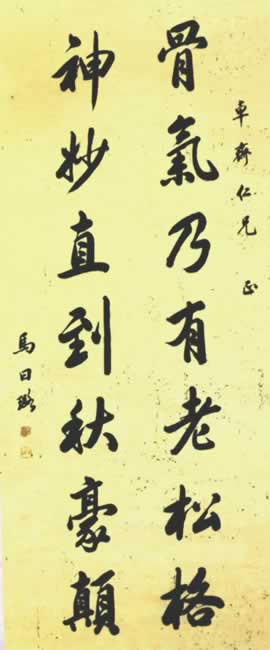 卓齋仁兄 正
骨氣乃有老松格
神妙直到秋豪顛
馬日璐